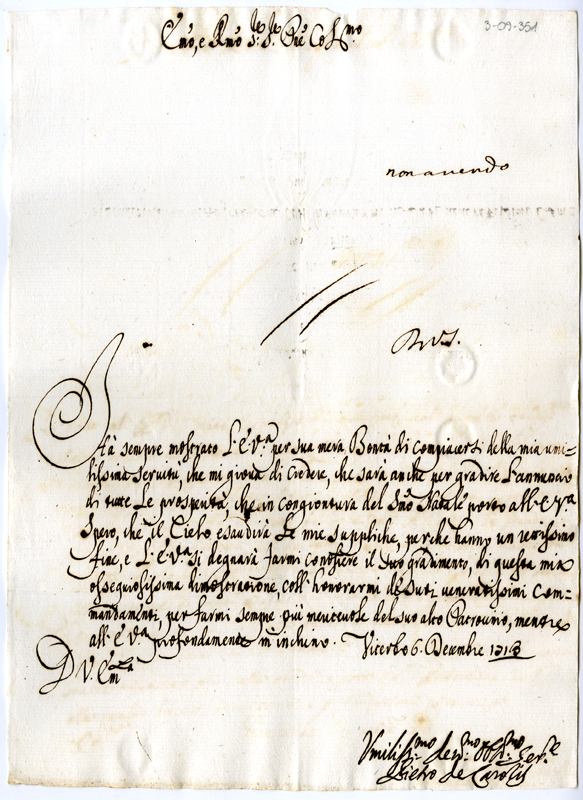 3-09-351
Emo, e Rmo Sr. Sr. Pne Colmo
non avendo
Hà sempre mostrato L'E.Va per sua mera Bontà di compiacersi della mia umi-
lissima servitù, che mi giova di credere, che sarà anche per gradire l'annuncio
di tutte le prosperità, che in congiontura del Smo Natale porto all'E.Va
Spero, che il Cielo esaudirà le mie suppliche, perche hanno un verissimo
fine, e L'E.Va si degnarà farmi conoscere il suo gradimento, di questa mia
ossequiosissima dimostrazione, coll'honorarmi de suoi veneratissimi com-
mandamenti, per farmi sempre più meritevole del suo alto Patrocinio, mentre
all'E.Va profondamente m'inchino. Viterbo 6. Decembre 1713
D V. Emza
Umilissmo devmo Obmo Serre
Pietro de Carolis